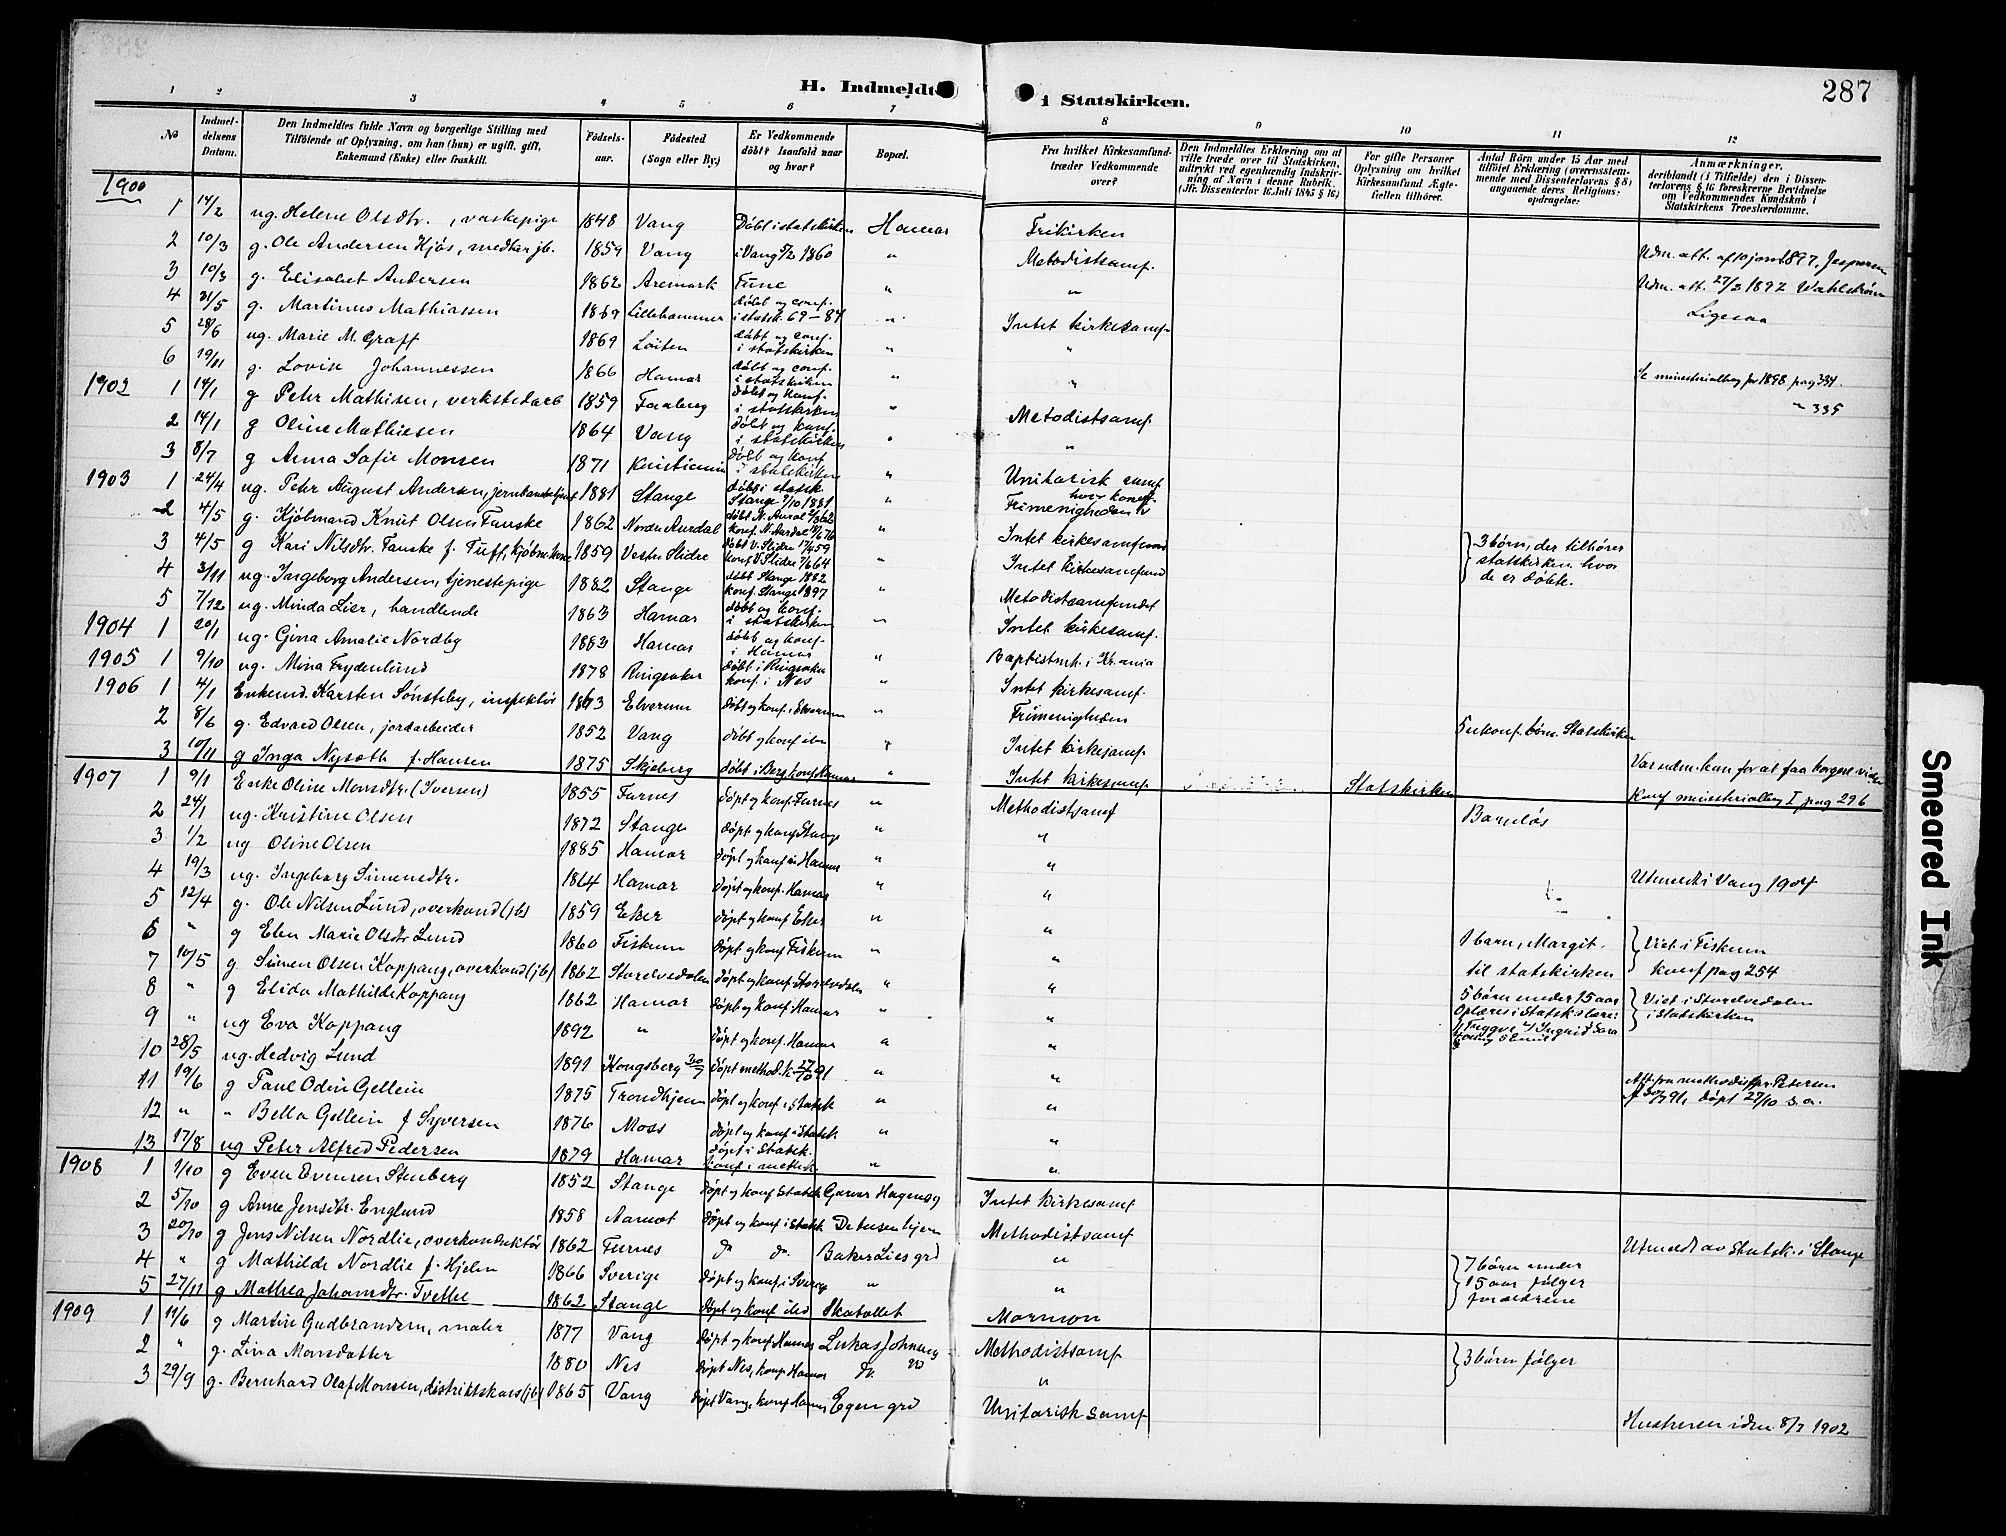 287
H. Indmeldte i Statskirken.
1 2 3 4 5 6 7 8 9 10 11 12
No
Indmeldelsens Datum.
Den Indmeldtes fulde Navn og borgerlige Stilling med Tilföiende af Oplysning, om han (hun) er ugift, gift, Enkemand (Enke) eller fraskilt.
Födselsaar.
Födested (Sogn eller By.)
Er Vedkommende döbt? Isaafald naar og hvor?
Bopæl.
Fra hvilket Kirkesamfund træder Vedkommende over?
Den Indmeldtes Erklæring om at ville træde over til Statskirken, udtrykt ved egenhændig Indskrivning af Navn i denne Rubrik. (Jfr. Dissenterlov 16 Juli 1845 § 16.)
For gifte Personer Oplysning om hvilket Kirkesamfund Ægtefællen tilhörer.
Antal Börn under 15 Aar med tilföiet Erklæring (overensstemmende med Dissenterlovens § 8) angaaende deres Religionsopdragelse:
Anmærkninger, deriblandt (i Tilfælde) den i Dissenterlovens § 16 foreskrevne Bevidnelse om Vedkommendes Kundskab i Statskirkens Troeslærdomme.
1900
1 14/2 ug. Helene Olsdtr., vaskepige 1848 Vang Döbt i statskirken Hamar Frikirken
2 10/3 g. Ole Andersen Kjös, medhar jb. 1859 Vang i Vang 5/2 1860 " Metodistsamf. Udm. att. af 10 jan 1897. Jespersen
3 10/3 g. Elisabet Andersen 1862 Aremark " " Udm. att. 27/3 1897 Wahlstrøm
4 31/5 g. Martinus Mathiassen 1869 Lillehammer döbt og conf. i statsk. 69-84 " Intet kirkesamf. Ligesaa
5 28/6 ug. Marie M. Graff 1869 Löiten döbt og conf. i statskirken " "
6 19/11 g. Lovise Johannessen 1866 Hamar döbt og conf. i statskirken " " Se ministerialbog for 1898 pag 334.
1902 1 14/1 g Peter Mathisen, verkstedarb 1859 Faaberg döbt og konf. i statskirken " Metodistsamf. " 335
2 14/1 g Oline Mathisen 1864 Vang döbt og konf. i statskirken " "
3 8/7 g Anna Sofie Monsen 1871 Kristiania döbt og konf i statskirken " Unitarisk samf
1903 1 24/4 ug. Peter August Andersen, 1881 Stange döbt i statsk. Stange 9/10 1881 " Frimenigheden hvor konf.
2 4/5 g. Hjalmand Knut Olsen Fauske 1862 Nordre Aurdal döbt N. Aurdal konf. N. Aurdal " Intet kirkesamfund
3 4/5 g Kari Nilsdtr. Fauske f. Tuff, 1859 Vestre Slidre döbt V. Slidre konf V. Slidre " Intet kirkesamfund 3 börn, der tilhörer statskirken, hvor de er döbte.
4 3/11 ug. Ingeborg Andersen, tjenestepige 1882 Stange döbt Stange 1882 konf. Stange 1897 " Metodistsamfundet
5 7/12 ug. Minda Lier, handlende 1863 Hamar döbt og konf. i statskirken " Intet kirkesamf.
1904 1 20/1 ug. Gina Amalie Nordby 1883 Hamar döbt og konf. i Hamar Baptistmh. i Kr.ania
1905 1 9/10 ug. Mina Frydenlund 1878 Ringsaker döbt i Ringsaker konf. i Nes " Intet kirkesamf.
1906 1 4/1 Enkemd. Karsten Sönsteby, inspektör 1863 Elverum döbt og konf. i Elverum " Frimenigheden
2 8/6 g. Edvard Olsen, jordarbeider 1852 Vang döbt og konf ibn " Intet kirkesamf. 5 ukonf. börn Statskirken
3 10/11 g Inga Nysöth f. Hansen 1875 Skjeberg döbt i Berg konf Hamar " Intet kirkesamf. Statskirken Var udm. kun for at faa borgerl. vielse Konf ministerialbog I pag 296
1907 1 9/1 Enke Oline Monsdtr. (Iversen) 1855 Furnes döpt og konf. Furnes " Methodistsamf
2 24/1 ug. Kristine Olsen 1872 Stange döpt og konf Stange " " Barnlös
3 1/2 ug Oline Olsen 1885 Hamar döpt og konf i Hamar " "
4 19/3 ug. Ingeborg Simensdtr. 1864 Hamar döpt og konf. Hamar " " Utmeldt i Vang 1904
5 12/4 g. Ole Nilsen Lund, overkond (jb) 1859 Eker döpt og konf Eker " "
6 " g Elen Marie Olsdtr Lund 1860 Fiskum döpt og konf Fiskum " " 1 barn, Margit. til statskirken Viet i Fiskum konf pag 254
7 10/5 g Simen Olsen Koppang, overkond (jb) 1862 Storelvedalen döpt og konf. Storelvedalen " "
8 " g Elida Mathilde Koppang 1862 Hamar döpt og konf. Hamar " " 5 börn under 15 aar Oplæres i Statsk. lære: Viet i Storelvedalen i Statskirken
9 " ug Eva Koppang 1892 " döpt og konf. Hamar " "
10 28/5 ug. Hedvig Lund 1891 Kongsberg 30/7 döpt method.k. 27/10 91 " " Att. fra methodistpr. Petersen f 30/7 91, döpt 27/10 s.a.
11 19/6 g Paul Odin Gellein 1875 Trondhjem döpt og konf i Statsk " "
12 " " Bella Gellein f Syversen 1876 Moss döpt og konf i Statsk " "
13 17/8 ug Peter Alfred Pedersen 1879 Hamar döpt i Statsk. konf i methk. " "
1908 1 1/10 g Even Evensen Stenberg 1852 Stange döpt og konf Statsk Garver Hagens g Intet kirkesamf
2 5/10 g Anne Jensdtr. Englund 1858 Aamot döpt og konf i Statsk De tusen hjem Methodistsamf
3 20/10 g Jens Nilsen Nordlie, overkonduktör 1862 Furnes do do. Baker Lies grd " Utmeldt av Statsk. i Stange
4 " g Mathilde Nordlie f. Hjelm 1866 Sverige döpt og konf. i Sverig " " 7 börn under 15 aar fölger foraeldrene
5 27/11 g Mathea Johansdtr. Tvethe 1862 Stange döpt og konf ibd Skatollet Mormon
1909 1 11/6 g Martin Gudbrandsen, maler 1877 Vang döpt og konf Hamar Lukas Johnseng Methodistsamf
2 " g. Lina Monsdatter 1880 Nes döpt Nes, konf Hamar do. " 3 börn fölger
3 29/9 g. Bernhard Olaf Monsen, (jb) 1865 Vang döpt Vang, konf Hamar Egen grd Unitarisk samf Hustruen iden 8/7 1902
Smeared Ink